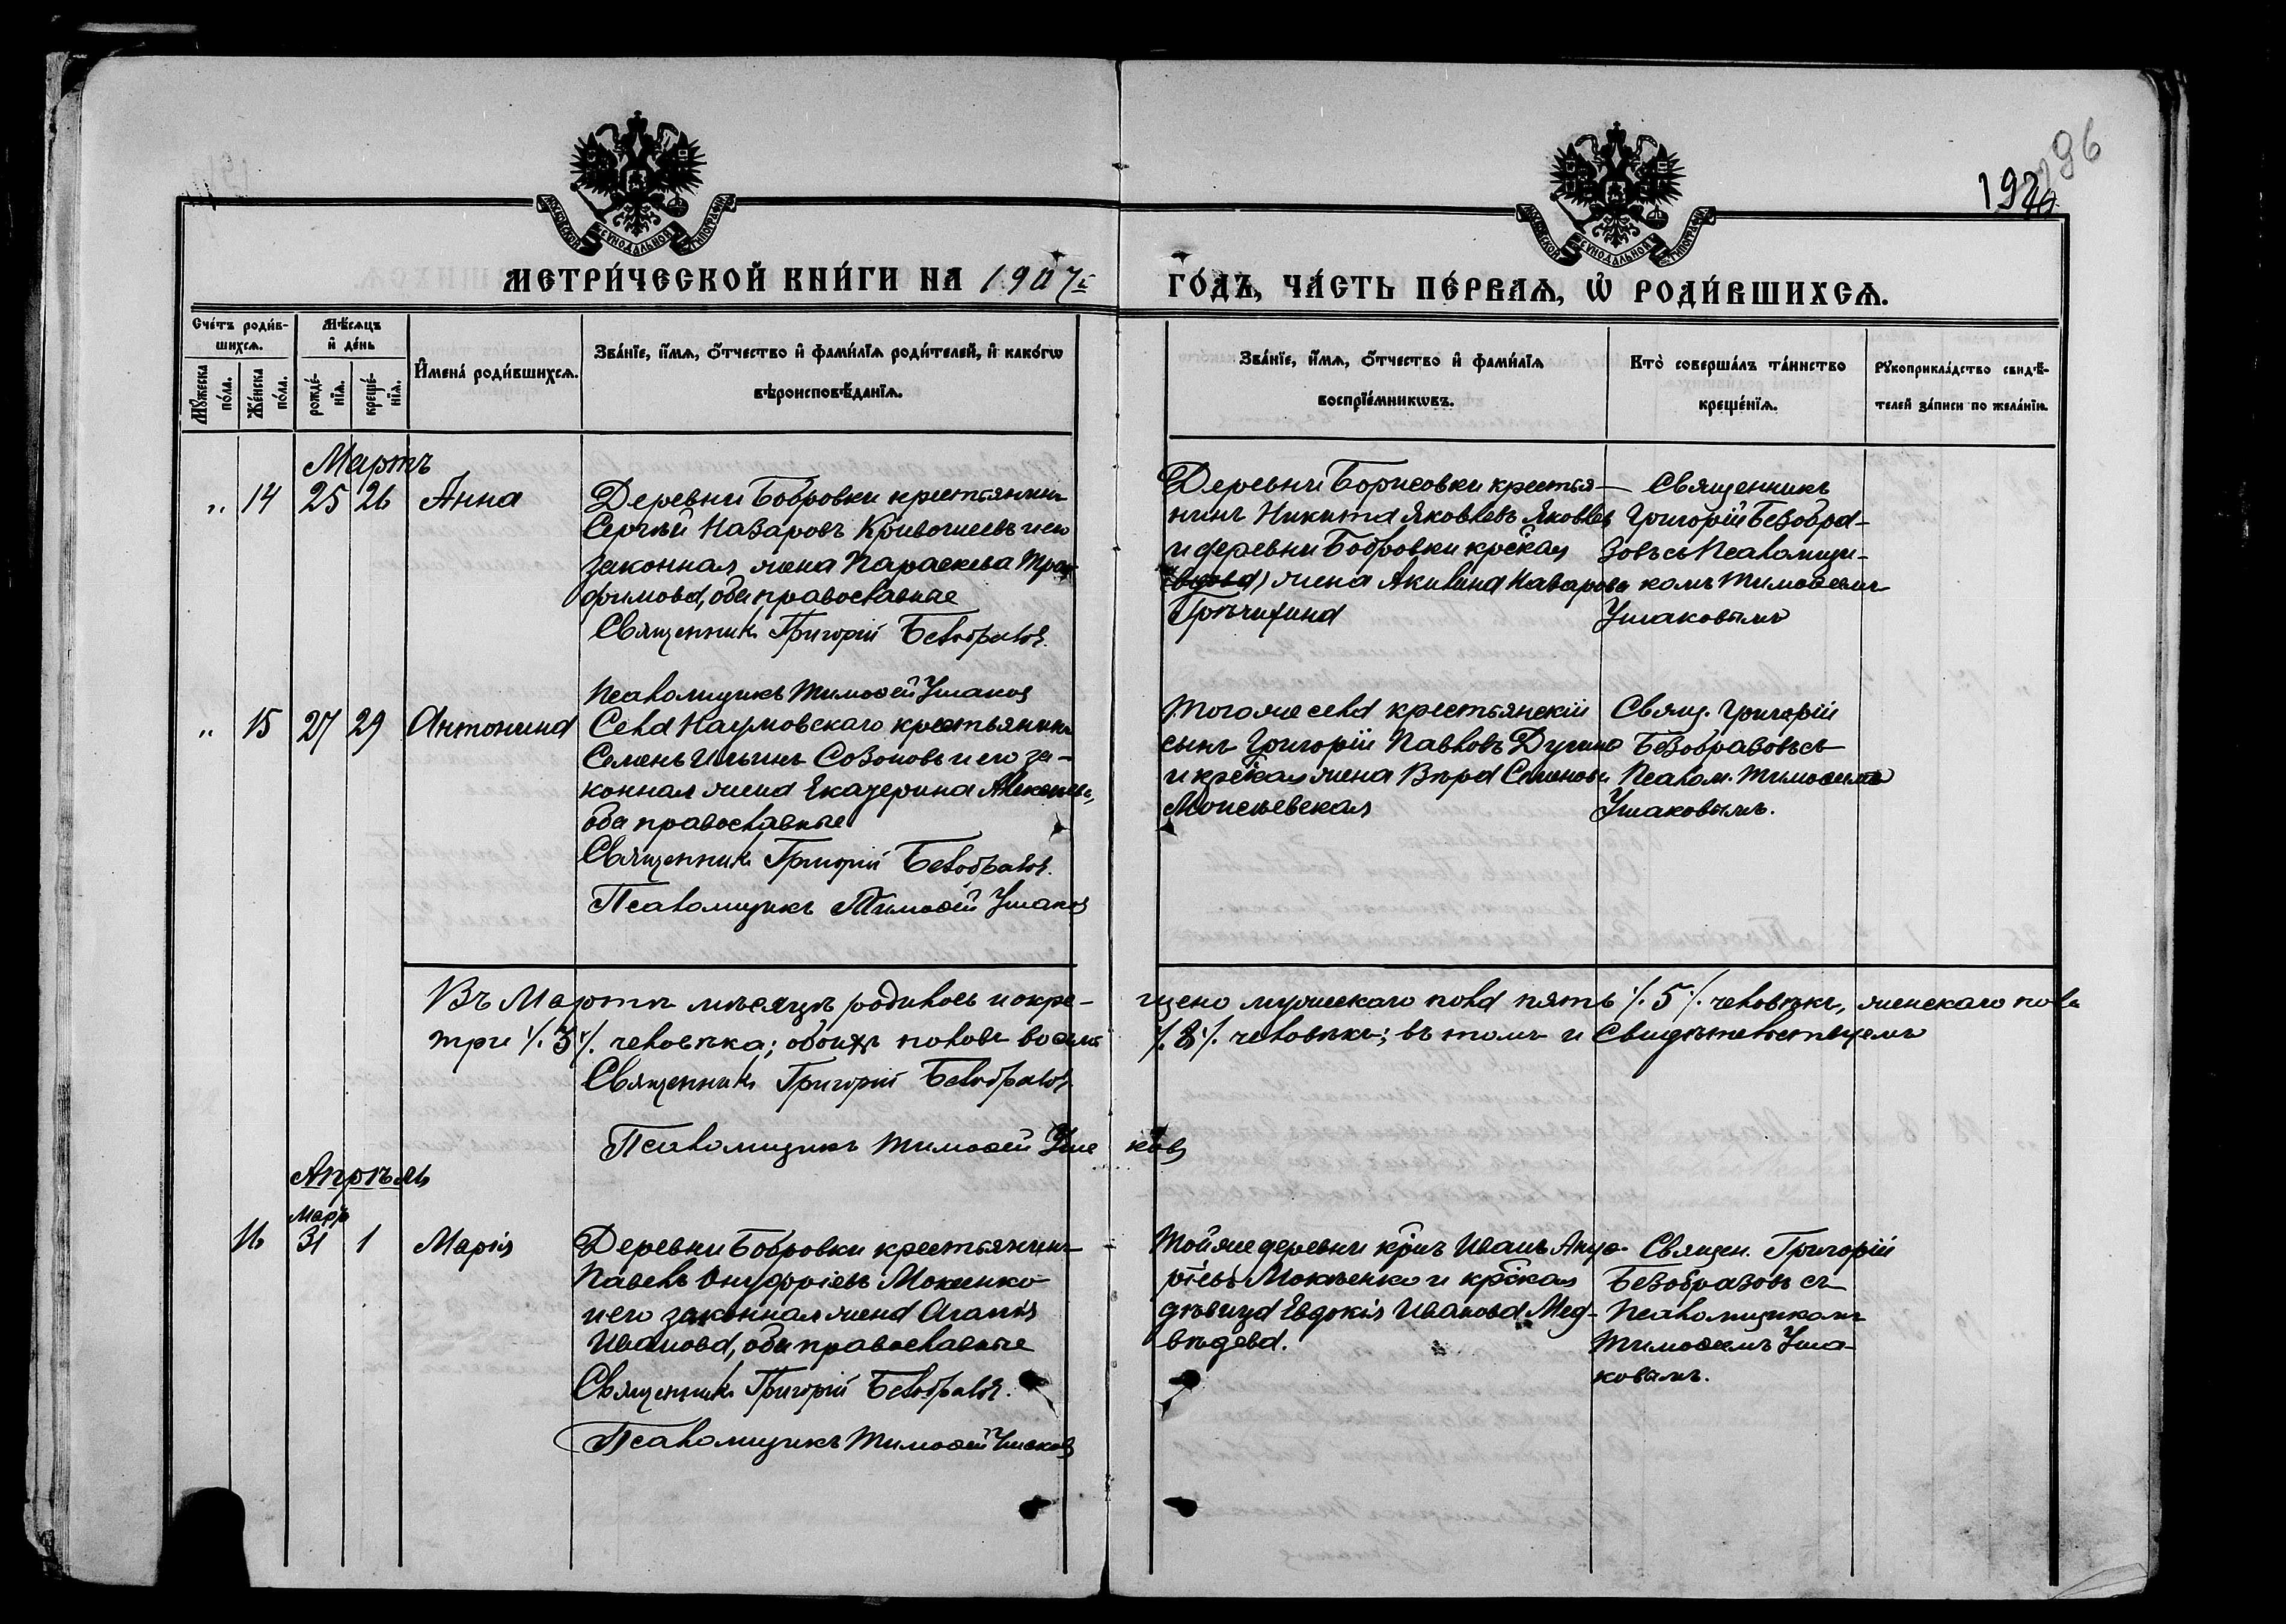 96
192
МЕТРИ́ЧЕСКОЙ КНИ́ГИ НА 1907й
ГО́ДЪ, ЧА́СТЬ ПЕ́РВАѦ, Ѽ РОДИ́ВШИХСѦ.
Сче́тъ роди́в-
шихсѧ.
Мѣ́сѧцъ
и҆ де́нь
Мꙋ́жеска
по́ла.
Же́нска
по́ла.
рожде́-
нїѧ.
креще́-
нїѧ.
И҆мена̀ роди́вшихсѧ.
Зва́нїе, и҆́мѧ, ѻ҆́тчество и҆ фамі́лїѧ роди́телей, и҆ како́гѡ
вѣроисповѣ́данїѧ.
Зва́нїе, и҆́мѧ, ѻ҆́тчество и҆ фамі́лїѧ
воспрїе́мникѡвъ.
Кто̀ соверша́лъ та́инство
креще́нїѧ.
Рꙋкоприкла́дство свидѣ́-
телей за́писи по жела́нїю.
Мартъ
„ 14 25 26 Анна
Деревни Бобровки крестьянинъ
Сергѣй Назаровъ Кривошеевъ и его
законная жена Параскева Тро-
фимова, оба православные
Священникъ Григорій Безобразовъ.
Псаломщикъ Тимоѳей Ушаковъ
Деревни Борисовки крестья-
нинъ Никита Яковлевъ Яковлев
и деревни Бобровки крс̃кая
(вдова) жена Акилина Назарова
Священникъ
Григорій Безобра-
зовъ съ Псаломщи-
комъ Тимоѳеемъ
Ушаковымъ
„ 15 27 29 Антонина
Села Наумовскаго крестьянинъ
Семенъ Ильинъ Созоновъ и его за-
конная жена Екатерина Алексѣева,
оба православные
Священникъ Григорій Безобразовъ.
Псаломщикъ Тимоѳей Ушаковъ
Тогоже села крестьянскій
сынъ Григорій Павловъ Дугино
и крс̃кая жена Вѣра Семенова
Моисеевская
Свящ. Григорій
Безобразовъ съ
Псалом. Тимоѳеемъ
Ушаковымъ.
Въ Мартѣ мѣсяцѣ родилось и окре-
щено мужескаго пола пять ./. 5 ./. человѣкъ, женскаго пола
три ./. 3 ./. человѣка; обоихъ половъ восемь
./. 8 ./. человѣкъ; въ томъ и Свидѣтельствуемъ
Священникъ Григорій Безобразовъ.
Псаломщикъ Тимоѳей Уша ковъ
Апрѣль
Март
16 31 1 Марія
Деревни Бобровки крестьянинъ
Павелъ Онуфріевъ Мокѣенко
и его законная жена Агапія
Иванова, оба православные
Священникъ Григорій Безобразовъ.
Псаломщикъ Тимоѳей Ушаковъ
Тойже деревни крс̃нъ Иванъ Ануф-
ріевъ Мокѣенко и крс̃кая
дѣвица Евдокія Иванова Мед-
вѣдева.
Священ. Григорій
Безобразовъ съ
Псаломщикомъ
Тимоѳеемъ Уша-
ковымъ.